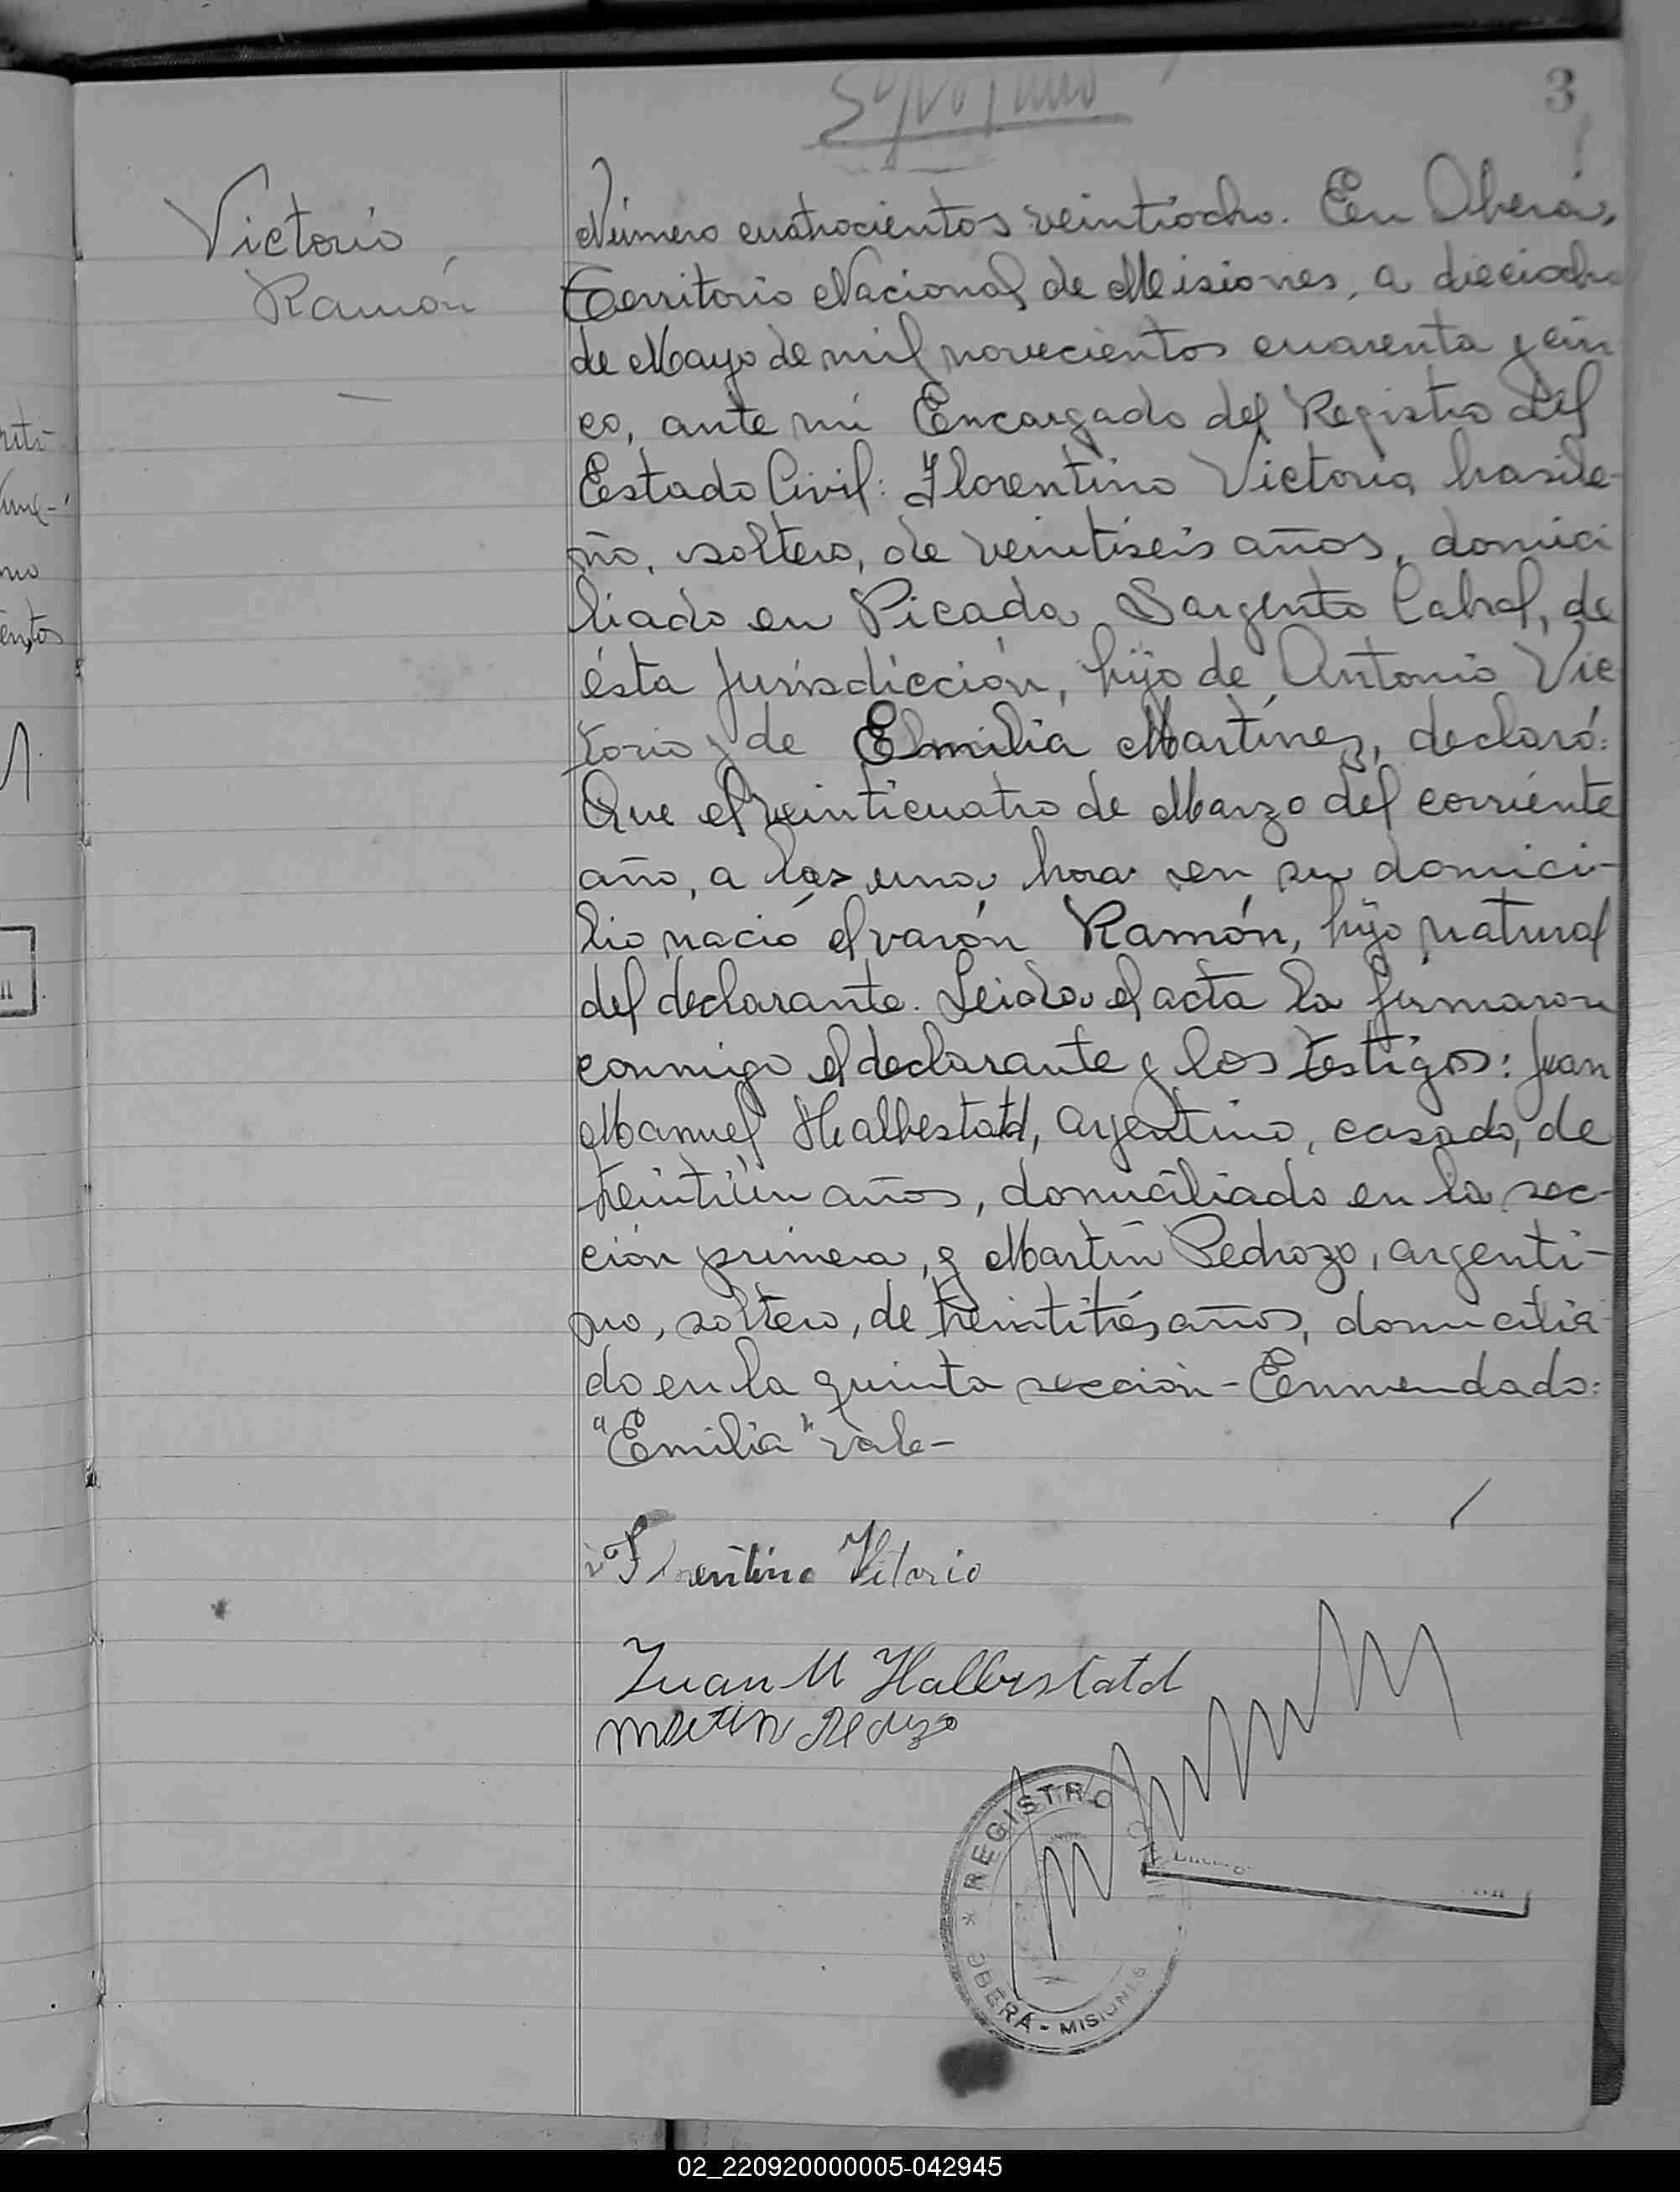 3
Victorio
Ramón
Número cuatrocientos veintiocho. En Oberá,
Territorio Nacional de Misiones, a dieciocho
de Mayo de mil novecientos cuarenta y cin
co, ante mi Encargado del Registro del
Estado Civil: Florentino Victorio, brasile-
ño, soltero, de veintiseis años, domici
liado en Picada Sargento Cabral, de
ésta jurisdicción, hijo de Antonio Vic
torio y de Emilia Martínez, declaró:
Que el veinticuatro de Marzo del corriente
año, a las una hora en su domici-
lio nació el varón Ramón, hijo natural
del declarante. Leida el acta la firmaron
conmigo el declarante y los testigos: Juan
Manuel Halbestatd, argentino, casado, de
treintiún años, domiciliado en la sec-
ción primera, y Martín Pedrozo, argenti-
no, soltero, de treintitrés años, domicilia
do en la quinta sección - Enmendado:
"Emilia" vale-
Florentino Vitorio
Juan M Halbestatd
REGISTRO CIVIL
* OBERÁ - MISIONES
02_220920000005-042945